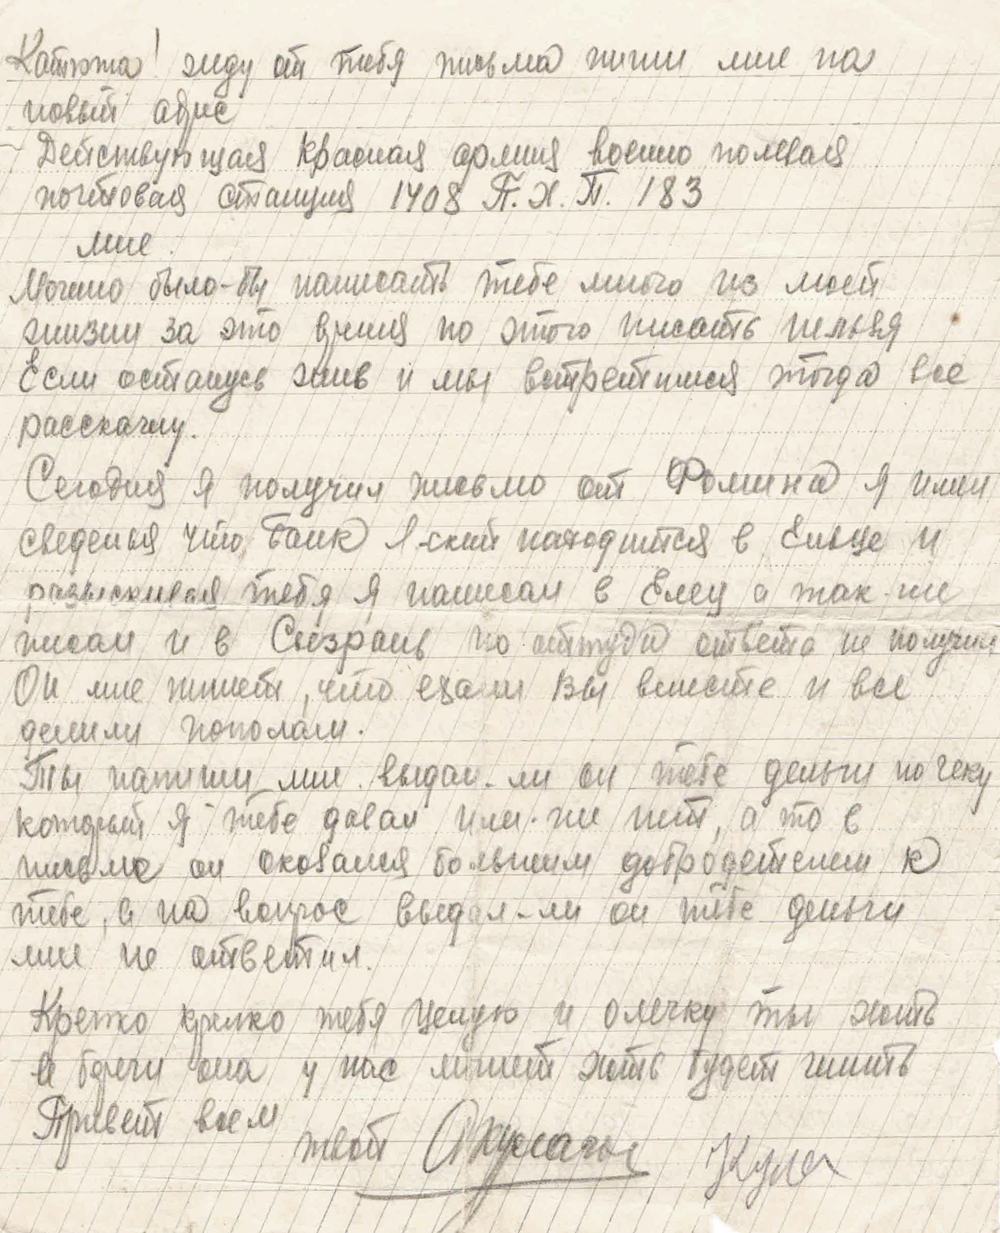 Катюжа! жду от тебя письма пиши мне на
новый адрес
Действующая Красная армия военно полевая
почтовая станция 1408 П.Х.П. 183
мне.
Можно было-бы написать тебе много из моей
жизни за это время но этого писать нельзя
Если останусь жив и мы встретимся тогда все
расскажу.
Сегодня я получил письмо от Фомина я имел
сведенья что банк находится в Ельце и
разыскивая тебя я написал в Елец а так-же
писал и в Сызрань но оттуда ответа не получил
Он мне пишет, что ехали вы вместе и все
делили пополам.
Ты напиши мне выдал-ли он тебе деньги по чеку
который я тебе давал или-же нет, а то в
письме он оказался большим добродетелем к
тебе, а на вопрос выдал-ли он тебе деньги
мне не ответил.
Крепко крепко тебя целую и Олечку ты хоть
её береги она у нас может хоть будет жить
Привет всем
твой